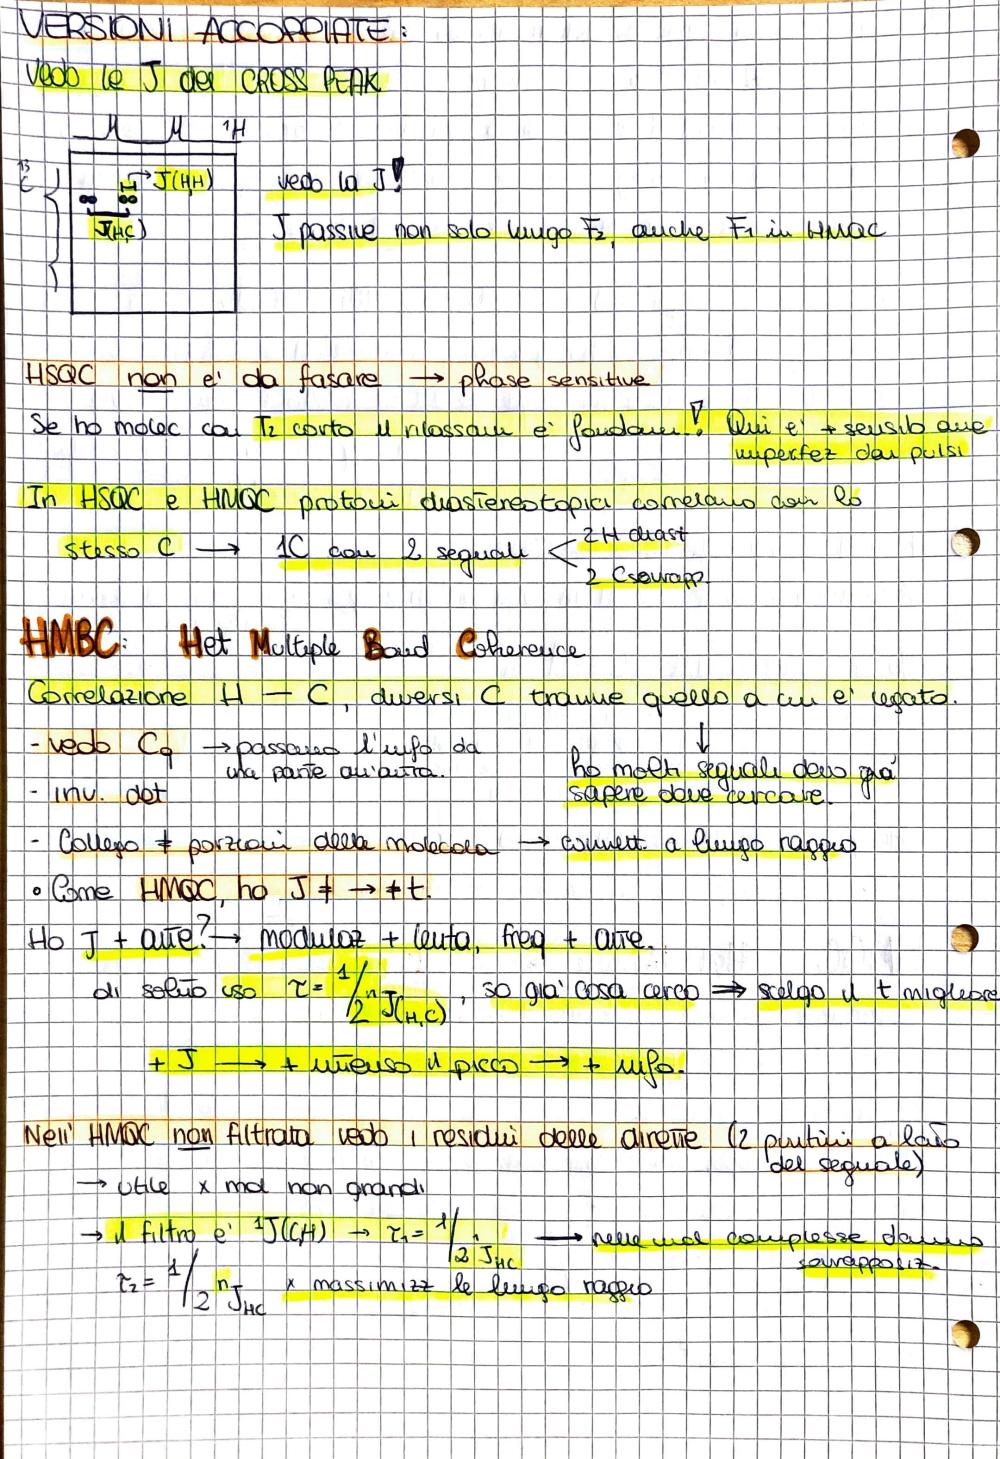 VERSIONI ACCOPPIATE:
Vedo le J dei CROSS PEAK
1H
13C
J(H,H)
vedo la J!
J(H,C)
J passive non solo lungo F2, anche F1 in HMQC
HSQC non e' da fasare → phase sensitive
Se ho molec con T2 corto il rilassam e' fondam! Qui e' + sensib alle
imperfez dei pulsi
In HSQC e HMQC protoni diastereotopici correlano con lo
stesso C → 1C con 2 segnali < 2H diast
2 C sovrapp
HMBC: Het Multiple Bond Coherence
Correlazione H — C, diversi C tranne quello a cui e' legato.
- vedo Cq → passano l'info da
una parte all'altra.
ho molti segnali devo già
sapere dove cercare.
- inv. det
- Collego ≠ porzioni della molecola → connett. a lungo raggio
• Come HMQC, ho J ≠ → ≠ t.
Ho J + alte? → modulaz + lenta, freq + alte.
di solito uso τ = 1/2 nJ(H,C), so già cosa cerco ⇒ scelgo il t migliore
+ J → + intenso il picco → + info.
Nell' HMQC non filtrata vedo i residui delle dirette (2 puntini a lato
del segnale)
→ utile x mol non grandi
→ il filtro e' 1J(C,H) → τ1 = 1/2 1JHC → nelle mol complesse danno
sovrapposiz.
τ2 = 1/2 nJHC x massimizz le lungo raggio